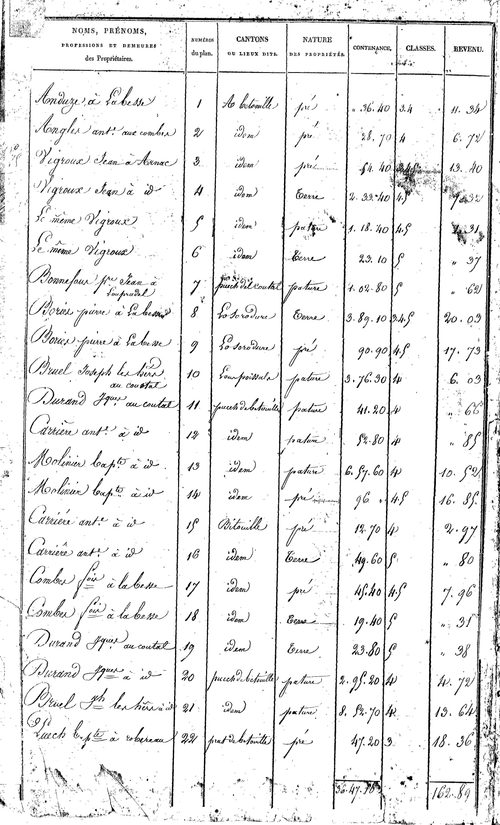 NOMS, PRÉNOMS, PROFESSIONS ET DEMEURES des Propriétaires. NUMÉROS du plan. CANTONS OU LIEUX DITS. NATURE DES PROPRIÉTÉS. CONTENANCE. CLASSES. REVENU.
Anduze à Labesse 1 pré " 36.40 3.4 11.34
Anglès ant.e aux combes 2 idem pré 28.70 4 6.72
Vigroux Jean à Arnac 3 idem pré 54.40 3.4.5 13.40
Vigroux Jean à id 4 idem Terre 2.33.40 4.5
Le même Vigroux 5 idem pature 1.18.40 4.5
Le même Vigroux 6 idem Terre 23.10 5 " 37
Bonnefous p.re Jean à 7 puech del coutal pature 1.02.80 5 " 62
Bories pierre à Labesse 8 La serodure Terre 3.89.10 3.4.5 20.03
Bories pierre à Labesse 9 La serodure pré 90.90 4.5 17.73
Bruel Joseph les hérs
au coutal 10 pature 3.76.30 4 6.03
Durand Jques au coutal 11 puech de betouille pature 41.20 4 " 66
Carrière ant.e à id 12 idem pature 52.80 4 " 85
Molinier bapte à id 13 idem pature 6.57.60 4 10.52
Molinier bapte à id 14 idem pré 96 " 4.5 16.85
Carrière ant.e à id 15 Bitouille pré 12.70 4 2.97
Carrière ant.e à id 16 idem Terre 49.60 5 " 80
Combes fois à labesse 17 idem pré 45.40 4.5 7.96
Combes fois à labesse 18 idem Terre 19.40 5 " 31
Durand Jques au coutal 19 idem Terre 23.80 5 " 38
Durand Jques à id 20 puech de betouille pature 2.95.20 4 4.72
Bruel Jph les hérs à id 21 idem pature 8.52.70 4 13.64
Puech bapte à 22 prat de betouille pré 47.20 3 18.36
162.89